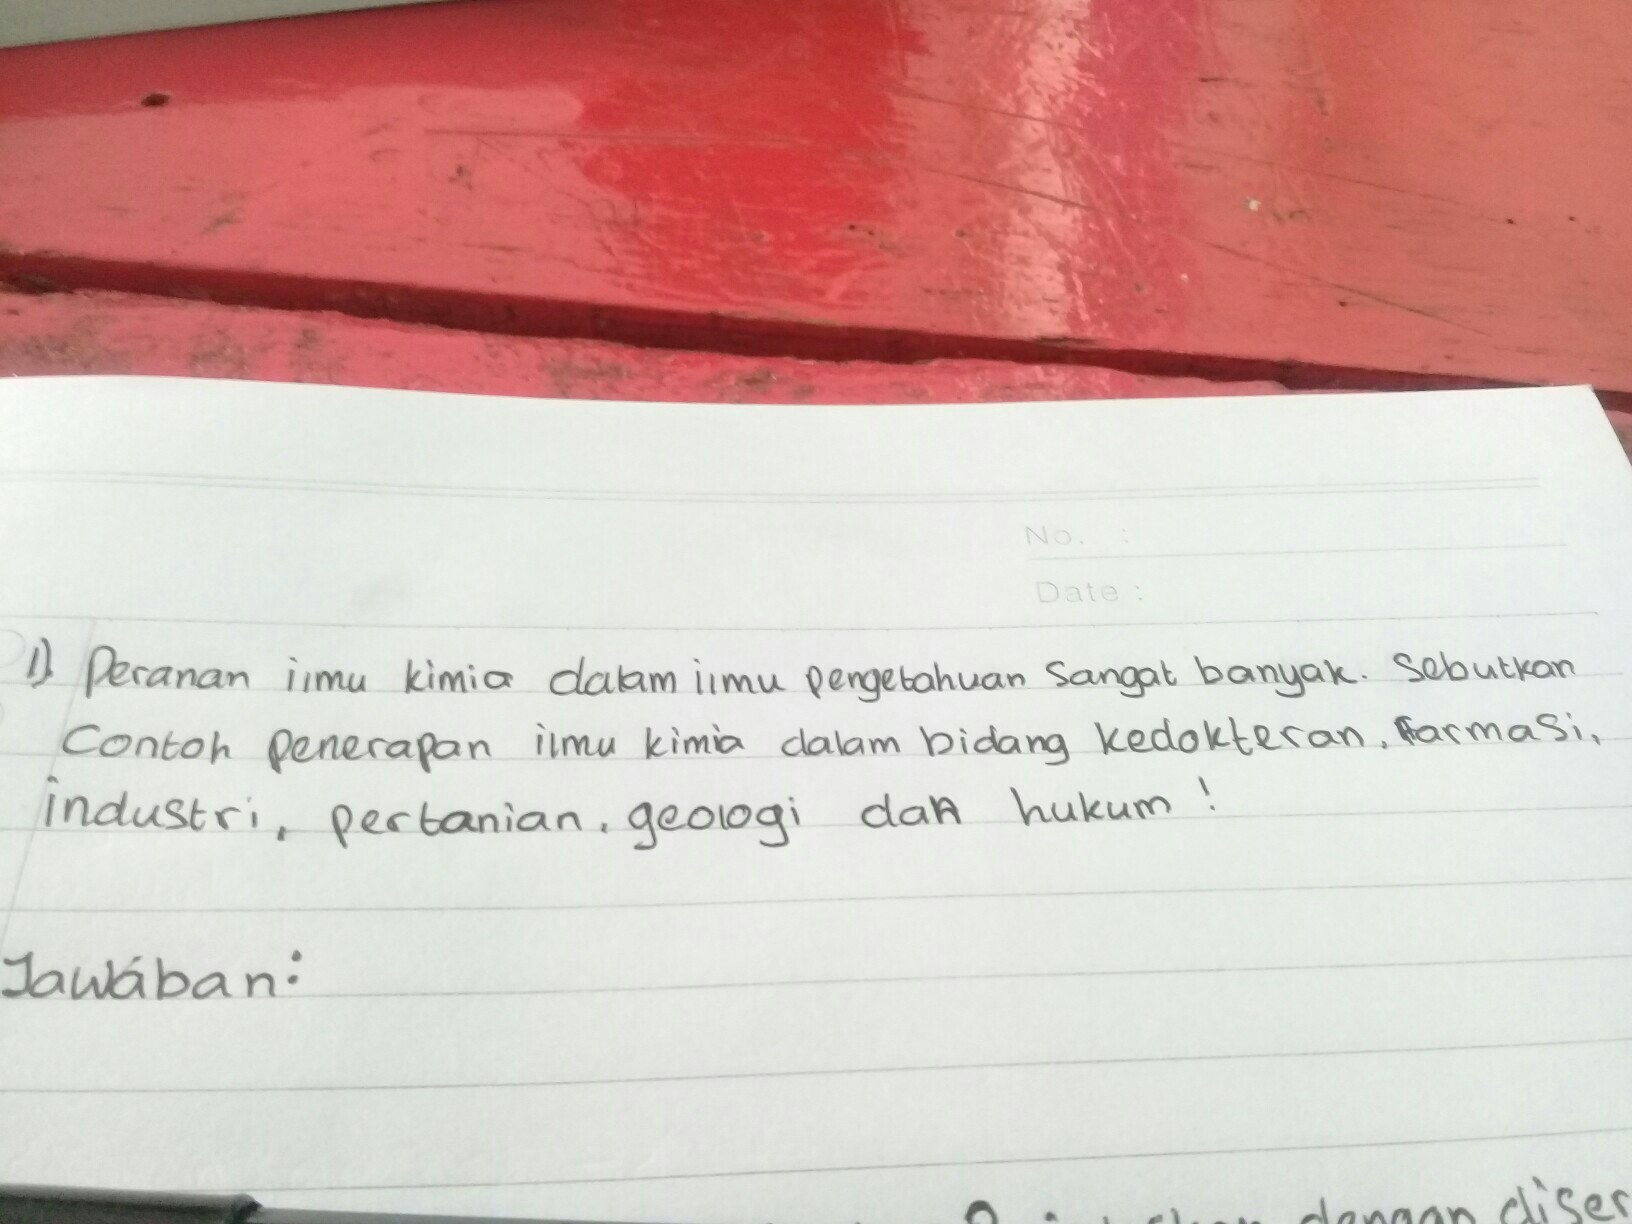 No. :
Date :
1) Peranan ilmu kimia dalam ilmu pengetahuan sangat banyak. Sebutkan
Contoh penerapan ilmu kimia dalam bidang kedokteran, Farmasi,
industri, pertanian, geologi dan hukum !
Jawaban:
dengan diser